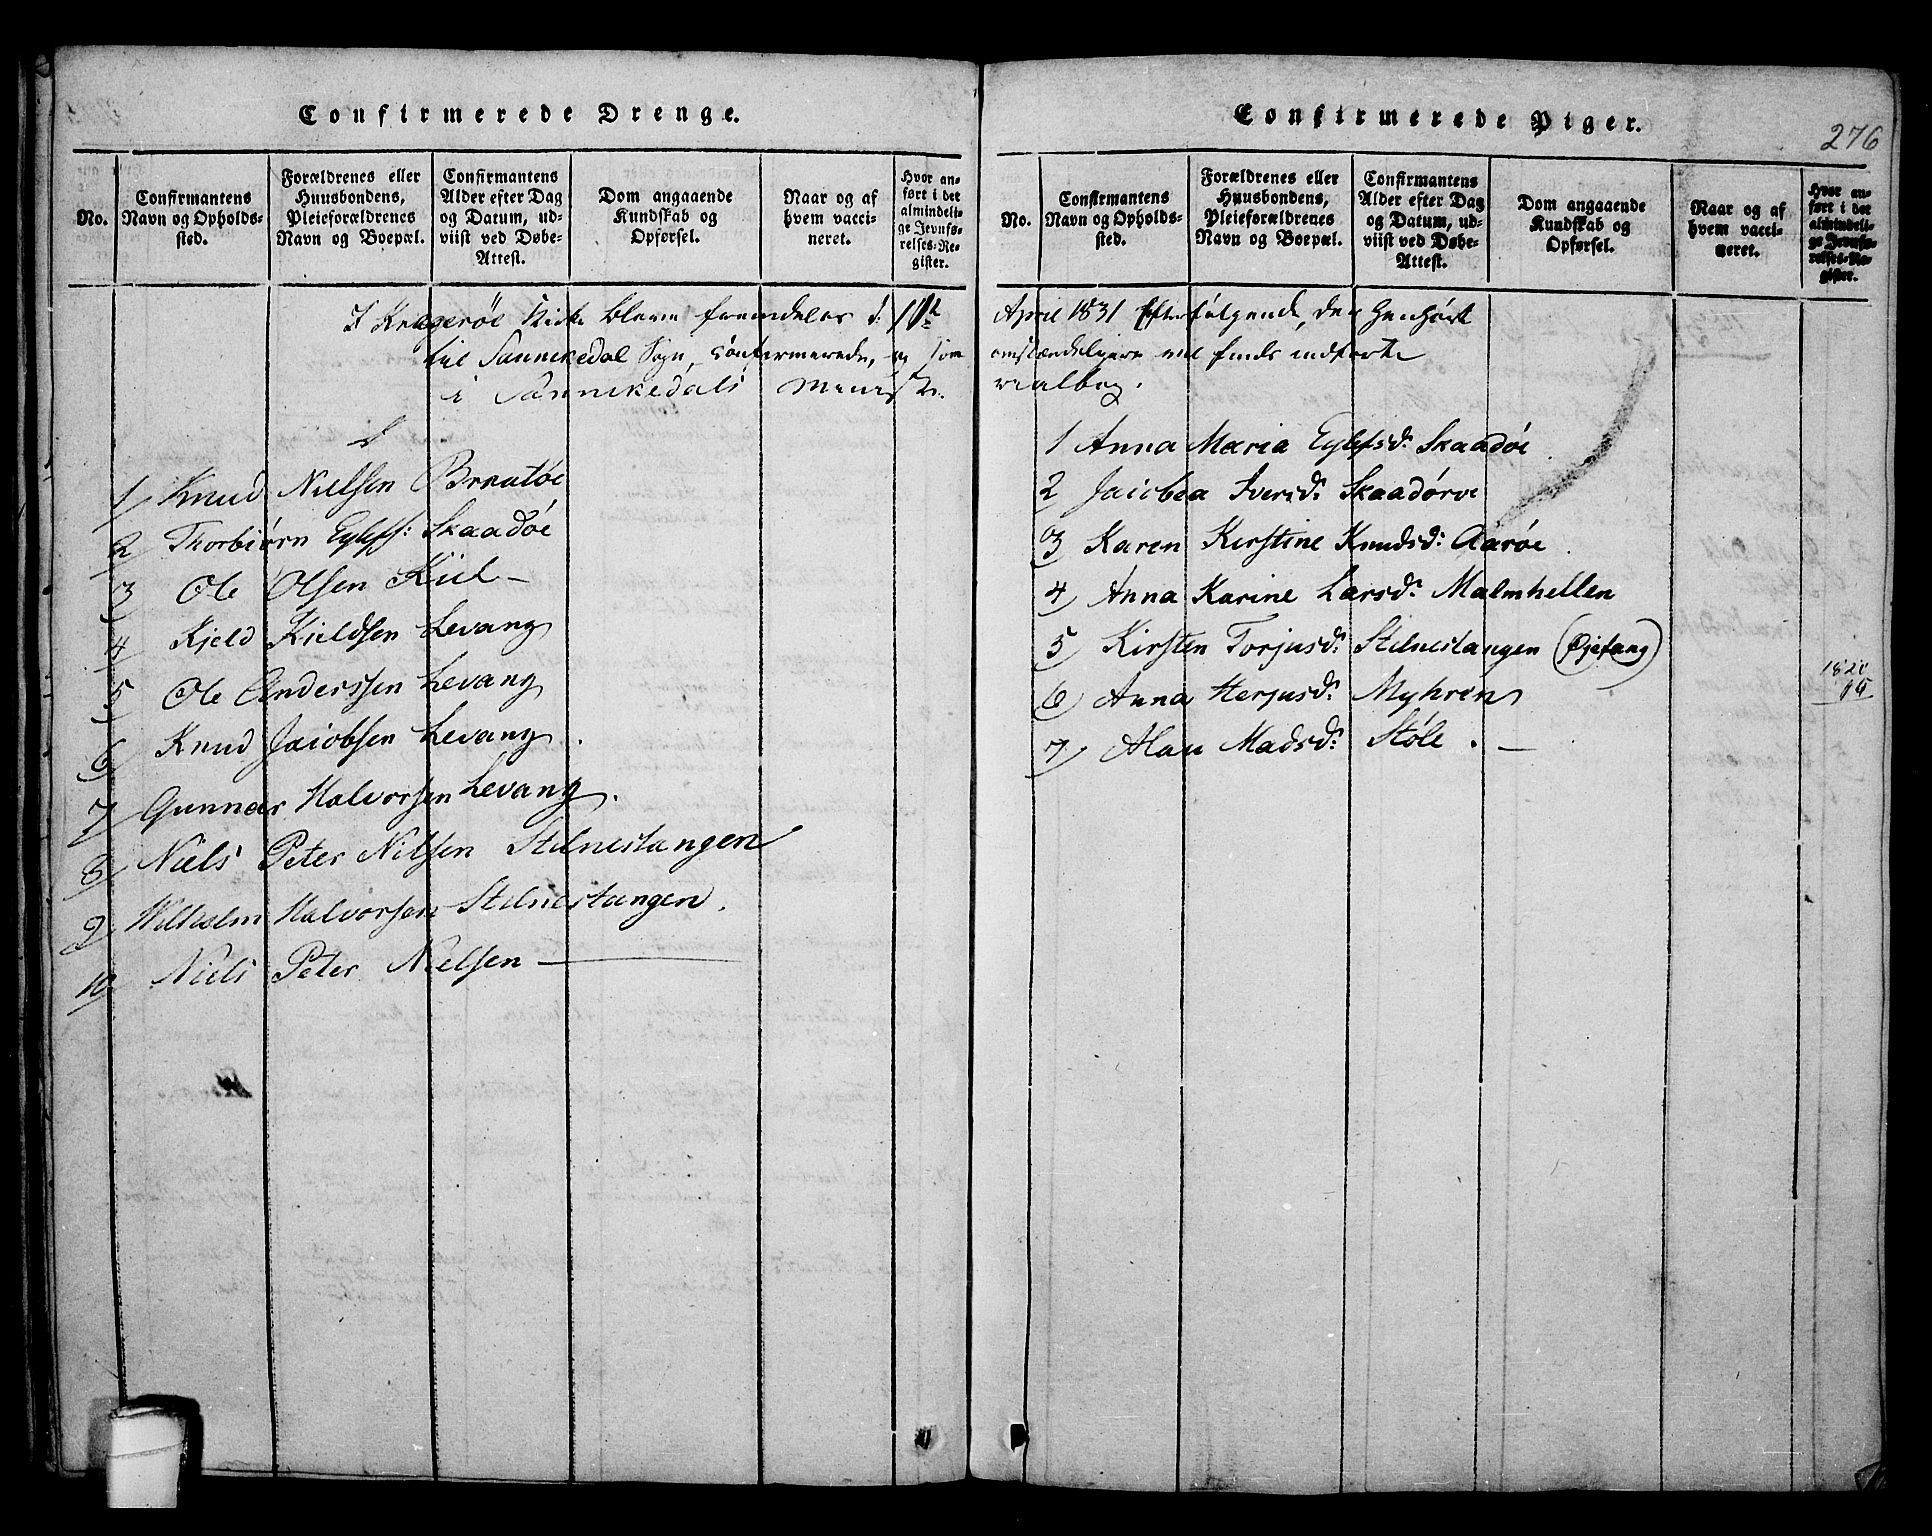 Confirmerede Drenge.
No.
Confirmantens
Navn og Opholds-
sted.
Forældrenes eller
Huusbondens,
Pleieforældrenes
Navn og Boepæl.
Confirmantens
Alder efter Dag
og Datum, ud-
viist ved Døbe-
Attest.
Dom angaaende
Kundskab og
Opførsel.
Naar og af
hvem vacci-
neret.
Hvor an-
ført i det
almindeli-
ge Jevnfø-
relses-Re-
gister.
I Kragerøe Kirke bleve fremdeles d:
til Sannikedal Sogn, confirmerede, og som
i Sannikedals Minist
1 Knud Nielsen Bratøe
2 Thorbiørn Eylefs: Skaadøe
3 Ole Olsen Kiil
4 Kjeld Kieldsen Levang
5 Ole Anderssen Levang
6 Knud Jacobsen Levang
7 Gunnar Halvorsen Levang
8 Niels Peter Nilsen Stilnestangen
9 Wilhelm Halvorsen Stilnestangen.
10 Niels Peter Nielsen
Confirmerede Piger.
276
No.
Confirmantens
Navn og Opholds-
sted.
Forældrenes eller
Huusbondens,
Pleieforældrenes
Navn og Boepæl.
Confirmantens
Alder efter Dag
og Datum, ud-
viist ved Døbe-
Attest.
Dom angaaende
Kundskab og
Opførsel.
Naar og af
hvem vacci-
neret.
Hvor an-
ført i det
almindeli-
ge Jevnfø-
relses-Re-
gister.
April 1831 Efterfølgende, der henhørt
omstændeligere vil findes indførte
rialbog.
1 Anna Maria Eylefsd: Skaadøe
2 Jacobea Iversd: Skaadøe
3 Karen Kirstine Knudsd: Aarøe
4 Anna Karine Larsd: Malmhellen
5 Kirsten Torjusd: Stilnestangen (Øjefang)
6 Anna Herjusd: Myhren
7 Alau Madsd: Støle.